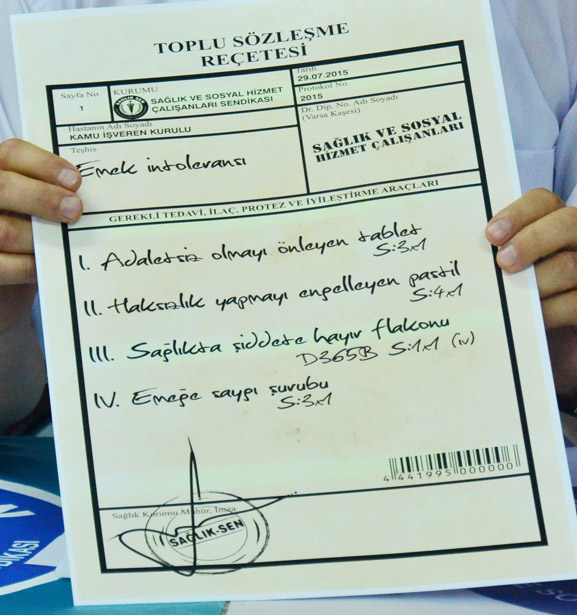 TOPLU SÖZLEŞME
REÇETESİ
Sayfa No
1
KURUMU
SAĞLIK VE SOSYAL HİZMET
ÇALIŞANLARI SENDİKASI
Tarih
29.07.2015
Protokol No.
2015
Hastanın Adı Soyadı
KAMU İŞVEREN KURULU
Dr. Dip. No. Adı Soyadı
(Varsa Kaşesi)
SAĞLIK VE SOSYAL
HİZMET ÇALIŞANLARI
Teşhis
Emek intoleransı
GEREKLİ TEDAVİ, İLAÇ, PROTEZ VE İYİLEŞTİRME ARAÇLARI
I. Adaletsiz olmayı önleyen tablet
S:3x1
II. Haksızlık yapmayı engelleyen pastil
S:4x1
III. Sağlıkta şiddete hayır flakonu
D365B S:1x1 (iv)
IV. Emeğe saygı şurubu
S:3x1
4 441995 000000
Sağlık Kurumu Mühür, İmza
SAĞLIK-SEN